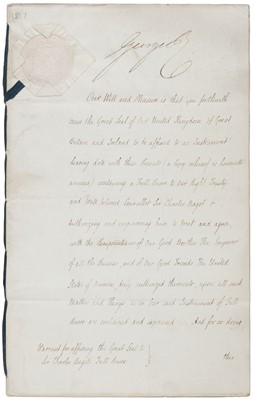 George R
Our Will and Pleasure is that you forthwith
cause the Great Seal of Our United Kingdom of Great
Britain and Ireland to be affixed to an Instrument
bearing date with these Presents (a Copy whereof is hereunto
annexed) containing a Full Power to Our Right Trusty
and Well beloved Councillor Sir Charles Bagot
authorizing and empowering him to treat and agree,
with the Plenipotentiaries of Our Good Brother The Emperor
of all the Russias, and of Our Good Friends The United
States of America, duly authorized thereunto, upon all such
Matters and Things as in Our said Instrument of Full
Power are contained and expressed. And for so doing
this
Warrant for affixing the Great Seal to
Sir Charles Bagot's Full Power